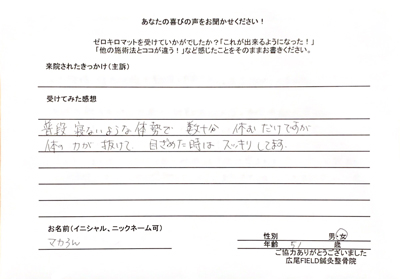 あなたの喜びの声をお聞かせください！
ゼロキロマットを受けていかがでしたか？「これが出来るようになった！」
「他の施術法とココが違う！」など感じたことをそのままお書きください。
来院されたきっかけ（主訴）
受けてみた感想
普段寝ないような体勢で 数十分 休むだけですが
体の力が抜けて 目ざめた時は スッキリしてます
お名前（イニシャル、ニックネーム可）
マカろん
性別 男・女
年齢 51 歳
ご協力ありがとうございました
広尾FIELD鍼灸整骨院